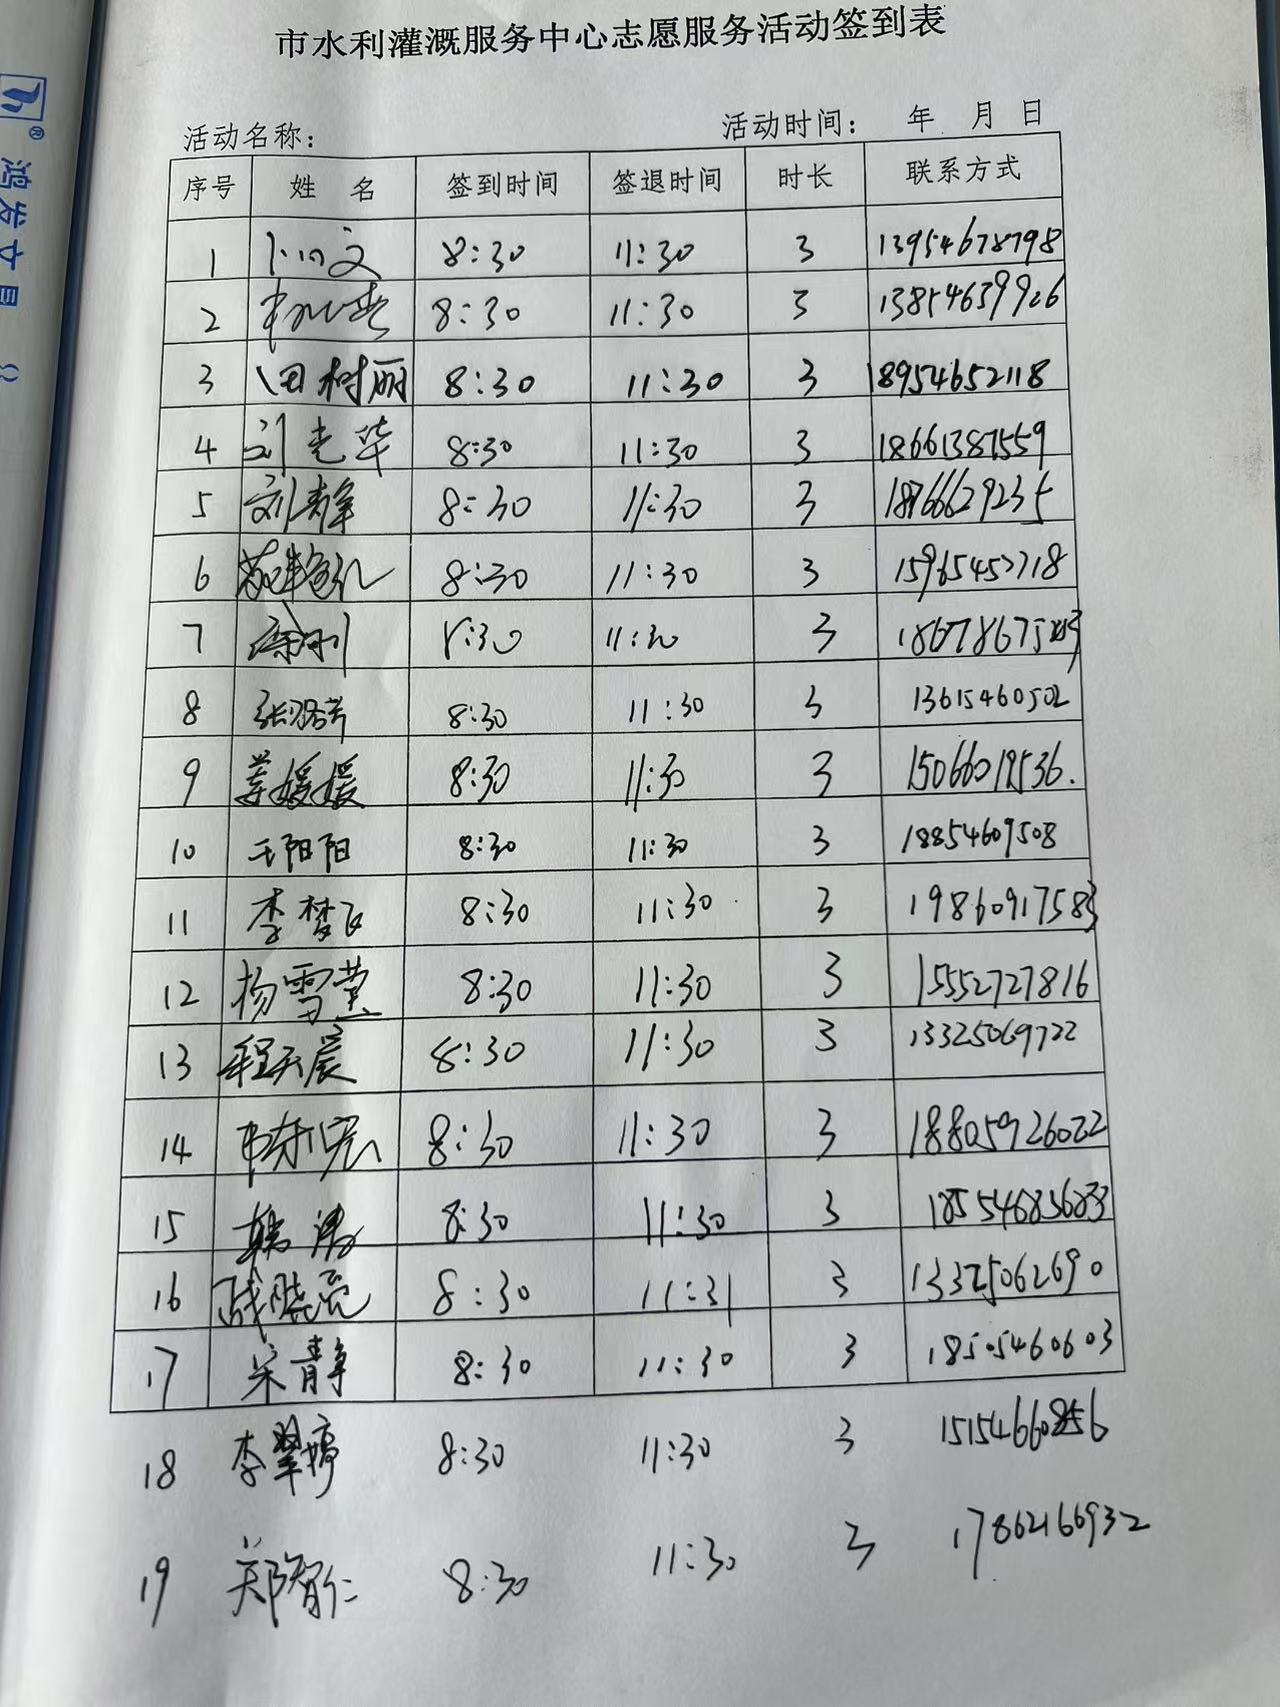 市水利灌溉服务中心志愿服务活动签到表
活动名称： 活动时间： 年 月 日
序号 姓 名 签到时间 签退时间 时长 联系方式
1 8:30 11:30 3 13954678798
2 8:30 11:30 3 13854639926
3 田树丽 8:30 11:30 3 18954652118
4 刘光华 8:30 11:30 3 18661387559
5 刘静 8:30 11:30 3 18766629235
6 8:30 11:30 3 15965452718
7 8:30 11:30 3
8 8:30 11:30 3 13615460502
9 姜媛媛 8:30 11:30 3
10 王阳阳 8:30 11:30 3 18854609508
11 李梦飞 8:30 11:30 3 19860917583
12 杨雪莹 8:30 11:30 3 15552727816
13 程天晨 8:30 11:30 3 13325069722
14 8:30 11:30 3 18805926022
15 韩涛 8:30 11:30 3
16 8:30 11:31 3 13325062690
17 宋静 8:30 11:30 3 18505460603
18 李翠婷 8:30 11:30 3 15154660856
19 郑智仁 8:30 11:30 3 17862166932
®
鸿发文具